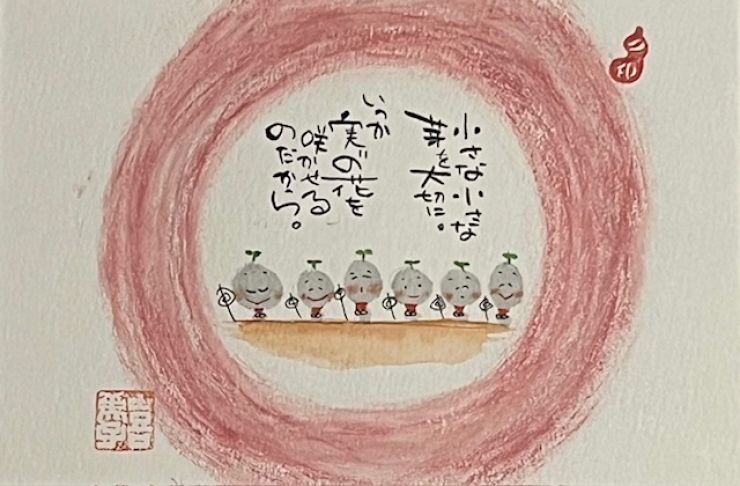 小さな小さな
芽を大切に。
いつか
実の花を
咲かせる
のだから。